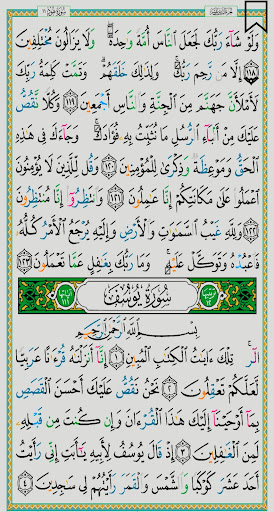 سُورَةُ هُودٍ ١١
وَلَوْ شَآءَ رَبُّكَ لَجَعَلَ ٱلنَّاسَ أُمَّةً وَٰحِدَةً ۖ وَلَا يَزَالُونَ مُخْتَلِفِينَ
﴿١١٨﴾ إِلَّا مَن رَّحِمَ رَبُّكَ ۚ وَلِذَٰلِكَ خَلَقَهُمْ ۗ وَتَمَّتْ كَلِمَةُ رَبِّكَ
لَأَمْلَأَنَّ جَهَنَّمَ مِنَ ٱلْجِنَّةِ وَٱلنَّاسِ أَجْمَعِينَ ﴿١١٩﴾ وَكُلًّا نَّقُصُّ
عَلَيْكَ مِنْ أَنۢبَآءِ ٱلرُّسُلِ مَا نُثَبِّتُ بِهِۦ فُؤَادَكَ ۚ وَجَآءَكَ فِى هَٰذِهِ
ٱلْحَقُّ وَمَوْعِظَةٌ وَذِكْرَىٰ لِلْمُؤْمِنِينَ ﴿١٢٠﴾ وَقُل لِّلَّذِينَ لَا يُؤْمِنُونَ
ٱعْمَلُوا۟ عَلَىٰ مَكَانَتِكُمْ إِنَّا عَٰمِلُونَ ﴿١٢١﴾ وَٱنتَظِرُوٓا۟ إِنَّا مُنتَظِرُونَ
﴿١٢٢﴾ وَلِلَّهِ غَيْبُ ٱلسَّمَٰوَٰتِ وَٱلْأَرْضِ وَإِلَيْهِ يُرْجَعُ ٱلْأَمْرُ كُلُّهُۥ
فَٱعْبُدْهُ وَتَوَكَّلْ عَلَيْهِ ۚ وَمَا رَبُّكَ بِغَٰفِلٍ عَمَّا تَعْمَلُونَ ﴿١٢٣﴾
سُورَةُ يُوسُفَ
بِسْمِ ٱللَّهِ ٱلرَّحْمَٰنِ ٱلرَّحِيمِ
الٓر ۚ تِلْكَ ءَايَٰتُ ٱلْكِتَٰبِ ٱلْمُبِينِ ﴿١﴾ إِنَّآ أَنزَلْنَٰهُ قُرْءَٰنًا عَرَبِيًّا
لَّعَلَّكُمْ تَعْقِلُونَ ﴿٢﴾ نَحْنُ نَقُصُّ عَلَيْكَ أَحْسَنَ ٱلْقَصَصِ
بِمَآ أَوْحَيْنَآ إِلَيْكَ هَٰذَا ٱلْقُرْءَانَ وَإِن كُنتَ مِن قَبْلِهِۦ
لَمِنَ ٱلْغَٰفِلِينَ ﴿٣﴾ إِذْ قَالَ يُوسُفُ لِأَبِيهِ يَٰٓأَبَتِ إِنِّى رَأَيْتُ
أَحَدَ عَشَرَ كَوْكَبًا وَٱلشَّمْسَ وَٱلْقَمَرَ رَأَيْتُهُمْ لِى سَٰجِدِينَ ﴿٤﴾